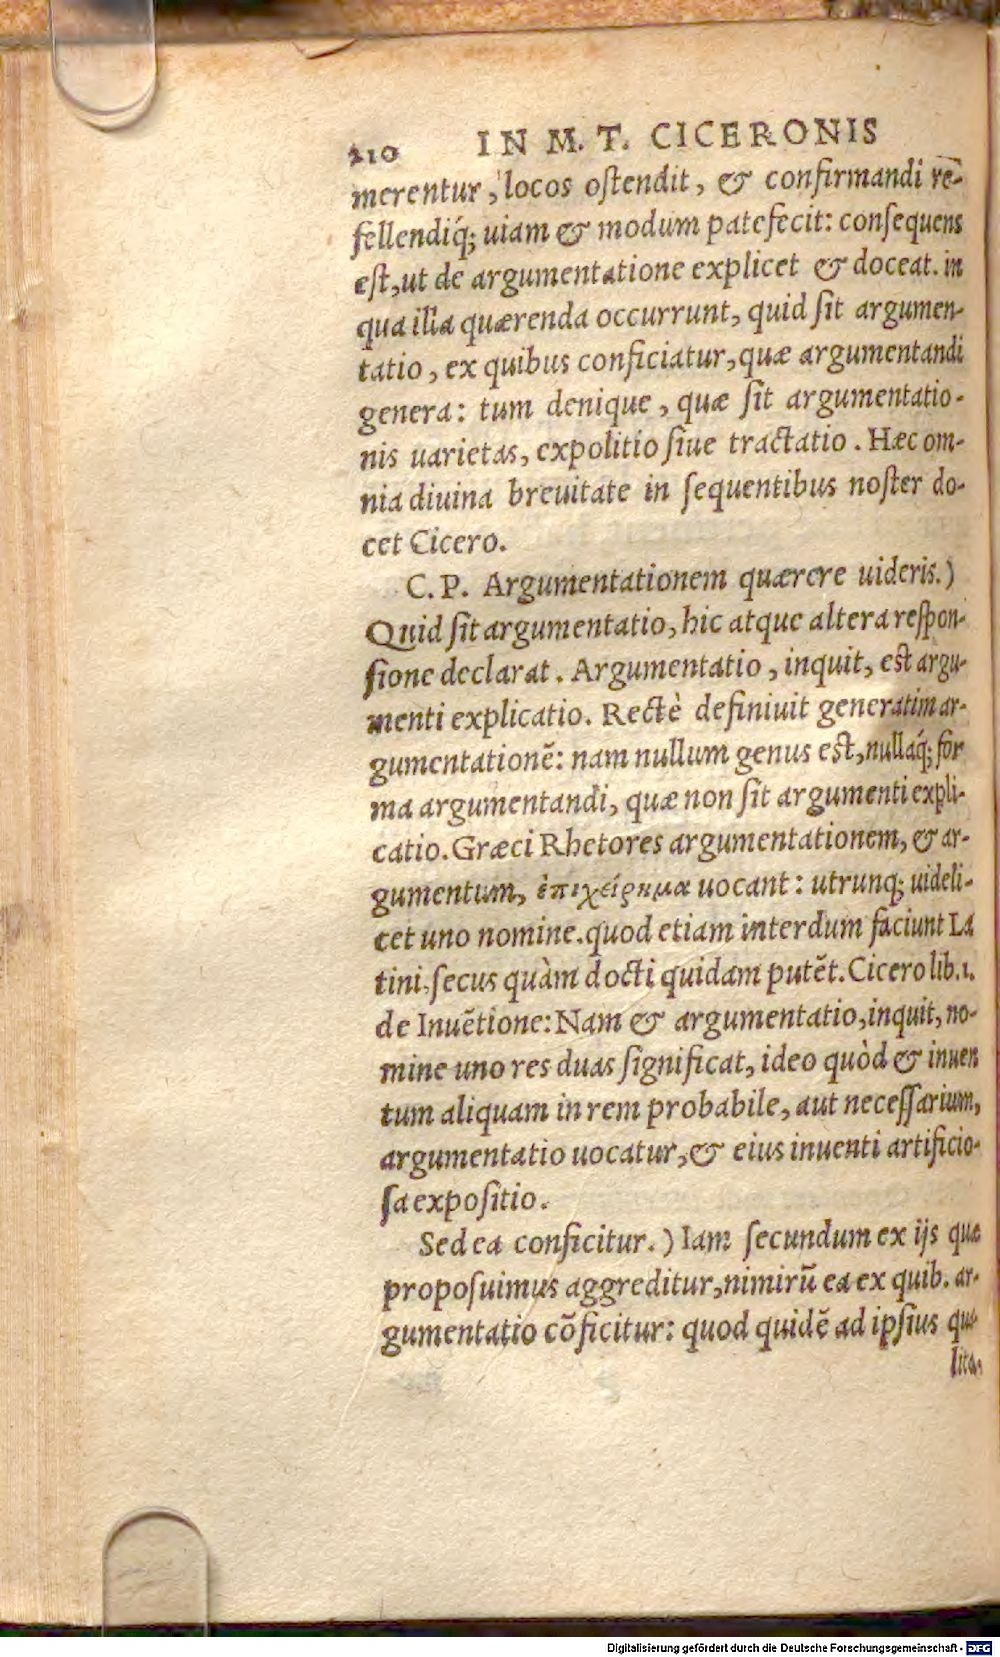 210 IN M. T. CICERONIS
merentur, locos oſtendit, & confirmandi re-
fellendiq́; uiam & modum patefecit: conſequens
eſt, ut de argumentatione explicet & doceat. in
qua illa quærenda occurrunt, quid ſit argumen-
tatio, ex quibus conficiatur, quæ argumentandi
genera: tum denique, quæ ſit argumentatio-
nis uarietas, expolitio ſiue tractatio. Hæc om-
nia diuina breuitate in ſequentibus noſter do-
cet Cicero.
C. P. Argumentationem quærere uideris.)
Quid ſit argumentatio, hic atque altera reſpon-
ſione declarat. Argumentatio, inquit, eſt argu-
menti explicatio. Rectè definiuit generatim ar-
gumentationẽ: nam nullum genus eſt, nullaq́; for
ma argumentandi, quæ non ſit argumenti expli-
catio. Græci Rhetores argumentationem, & ar-
gumentum, ἐπιχείρημα uocant: utrunq; uideli-
cet uno nomine. quod etiam interdum faciunt La
tini. ſecus quàm docti quidam putẽt. Cicero lib. 1.
de Inuẽtione: Nam & argumentatio, inquit, no-
mine uno res duas ſignificat, ideo quòd & inuen
tum aliquam in rem probabile, aut neceſſarium,
argumentatio uocatur, & eius inuenti artificio-
ſa expoſitio.
Sed ea conficitur.) Iam ſecundum ex ijs quæ
propoſuimus aggreditur, nimirũ ea ex quib. ar-
gumentatio cõficitur: quod quidẽ ad ipſius qua-
litas
Digitalisierung gefördert durch die Deutsche Forschungsgemeinschaft - DFG